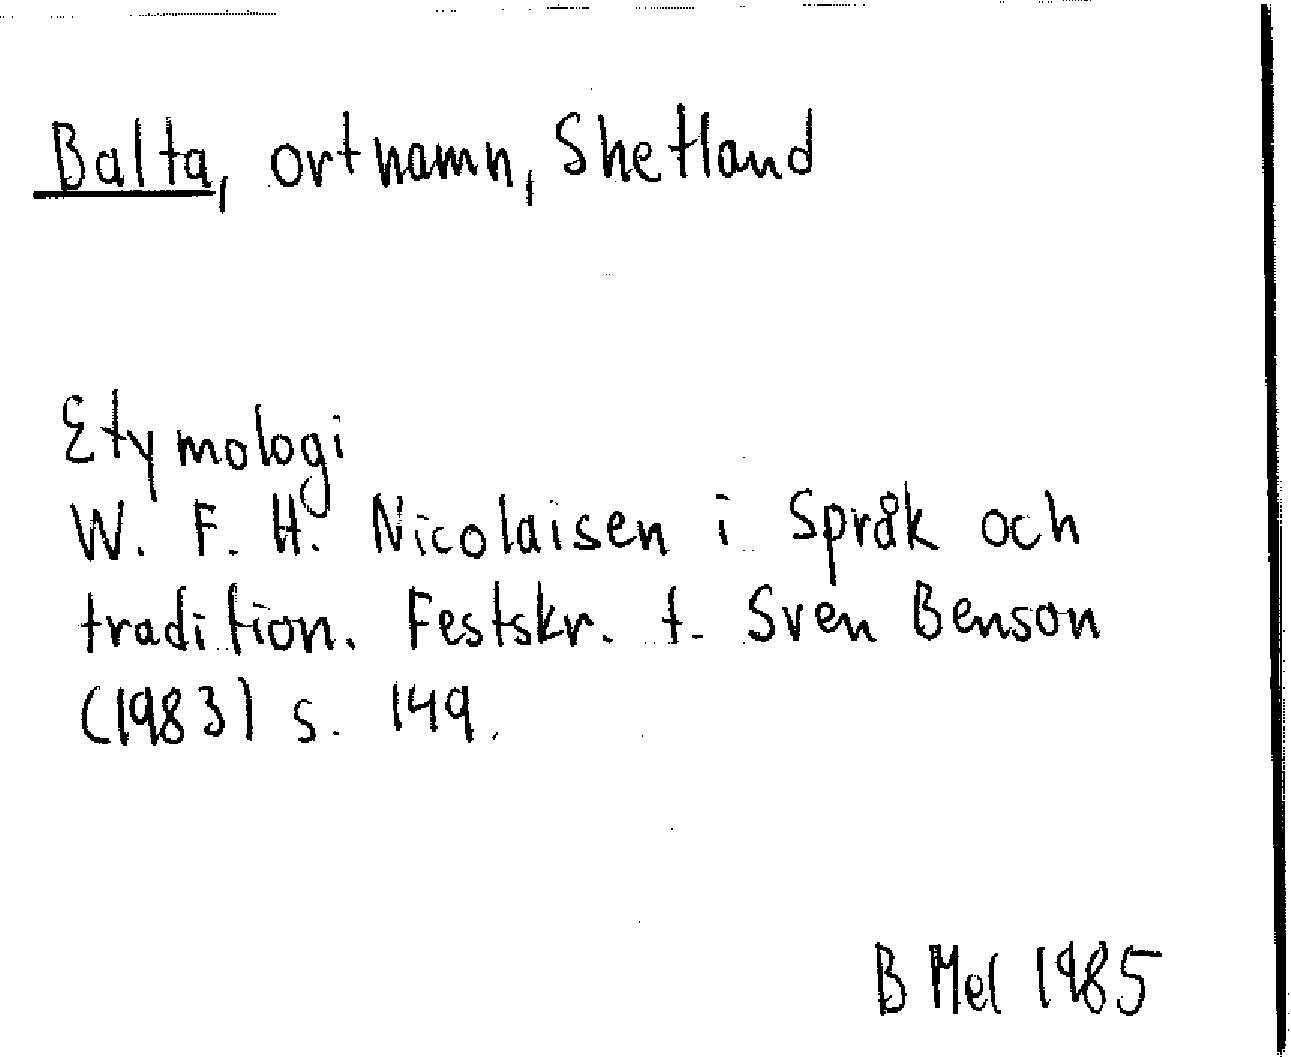 Balta, ortnamn, Shetland
Etymologi
W. F. H. Nicolaisen i Språk och
tradition. Festskr. t. Sven Benson
(1983) s. 149.
B Mel 1985